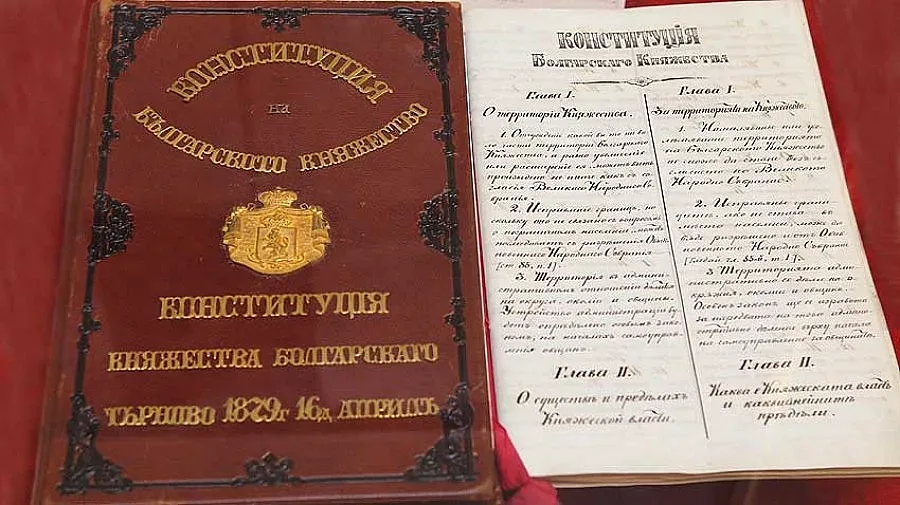 КОНСТИТУЦИЯ
НА
БЪЛГАРСКОТО КНЯЖЕСТВО
КОНСТИТУЦІЯ
КНЯЖЕСТВА БОЛГАРСКАГО
ТЪРНОВО 1879 г 16 д. АПРИЛЪ
КОНСТИТУЦІЯ
Болгарскаго Княжества
Глава I.
О территоріи Княжества.
территоріи Болгарскаго
Княжества, а равно увеличеніе
или расширеніе ея можетъ быть
произведено не иначе какъ съ со-
гласія Великаго Народнаго Со-
бранья.
2. Исправленіе границъ, по-
скольку оно не связано съ вопросомъ
Народнаго Собранія
[ст. 85, п. 1].
3. Территорія въ админи-
стративномъ отношеніи дѣлится
на округа, околіи и общины.
Устройство администраціи бу-
детъ опредѣлено особымъ зако-
номъ, на началахъ самоуправ-
ленія общинъ.
Глава II.
О существѣ и предѣлахъ
Княжеской власти.
Глава I.
За территорията на Княжество.
1. Намаляванье или уго-
лѣмяванье територията
на Българското Княжество
не може да стане безъ съ-
гласието на Великото
Народно Събрание.
2. Исправянье грани-
цитѣ, ако не става въ
мѣста населени, може да
бѫде разрѣшено и отъ Оби-
кновенното Народно Събрание
3 Територията адми-
нистративно се дѣли на о-
крѫжия, околии и общини.
Особенъ законъ ще се изработи
за нареждането на това админи-
стративно дѣление върху начала
на самоуправление за общинитѣ.
Глава II.
Каква е Княжеската власть
и какви сѫ нейнитѣ
прѣдѣли.